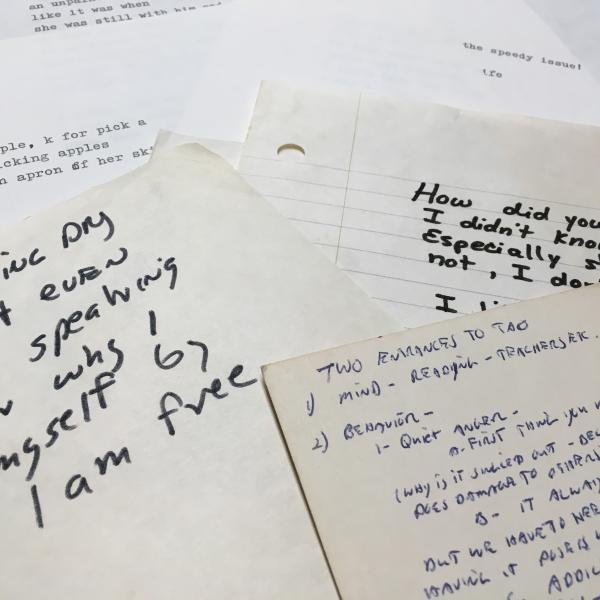 like it was when
she was still with him and
the speedy issue!
tfo
ple, k for pick a
icking apples
n apron of her sk
ING DAY
t EVEN
speaking
why I
myself by
I am free
How did you
I didn't know
Especially s
not, I don
I li
TWO ENTRANCES TO TAO
1) MIND - READING - TEACHERS EK.
2) BEHAVIOR -
1- QUIET ANGER -
A. FIRST THING YOU
(WHY IS IT SINGLED OUT - BEC
DOES DAMAGE TO OTHERS
B - IT ALWAY
BUT WE HAVE TO NEE
HAVING IT
ADDIC